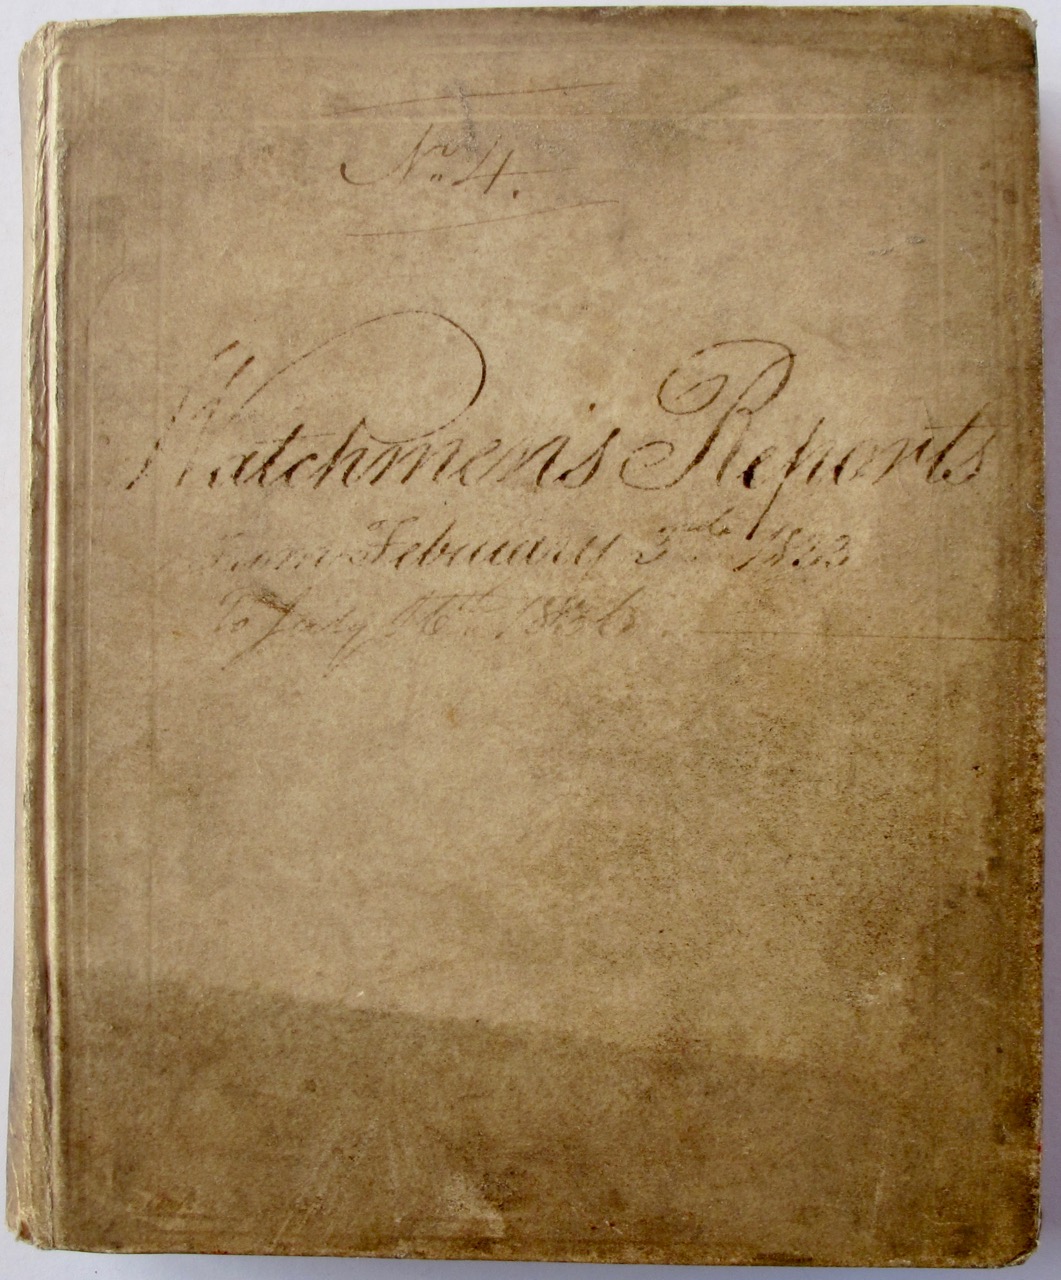 No. 4.
Watchmen's Reports
From February 3rd 1833
To July 16th 1836